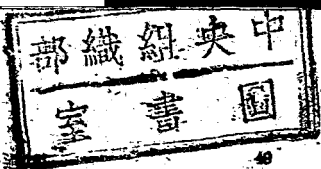 中央組織部
圖書室
49